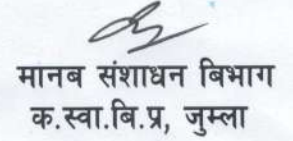 मानब संशाधन बिभाग
क.स्वा.बि.प्र, जुम्ला